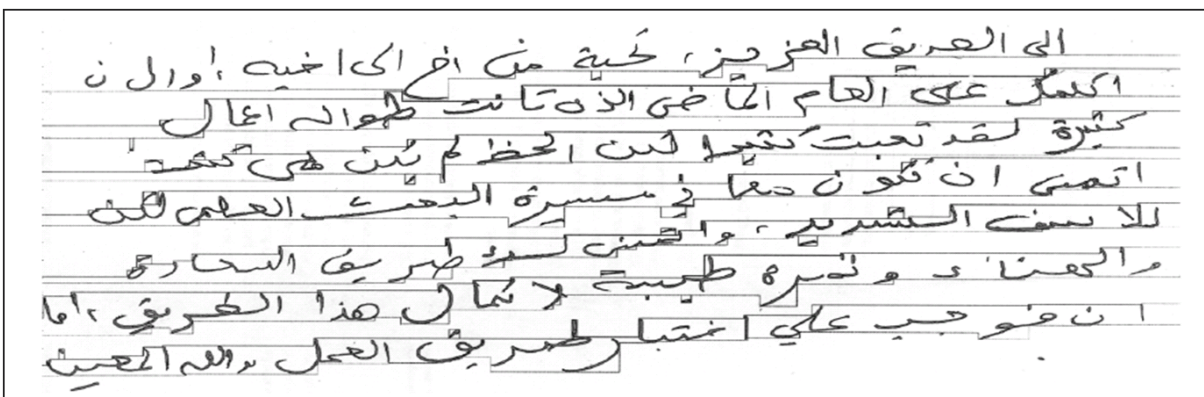 الى الصديق العزيز، تحية من اخ الى اخيه، اوال ن
اكلمك على العام الماضي الذي كانت طواله اعمال
كثيرة لقد تعبت كثيرا لكن الحظ لم يكن معي كنت
اتمنى ان نكون معا في مسيرة البحث العلمي لكن
للاسف الشديد، واتمنى لك طريق السعادة
والهناء ومسيرة طيبة لاكمال هذا الطريق، اما
ان فوجب علي اختيار طريق العمل والله المعين